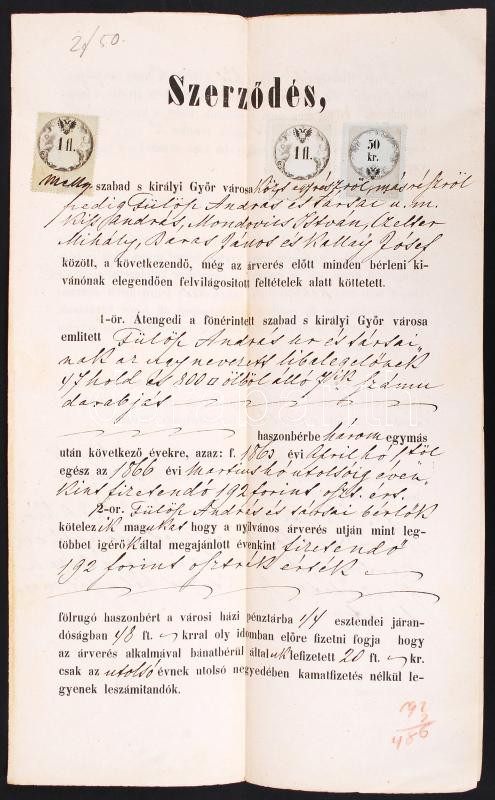 2f 50.
Szerződés,
1 fl.
1 fl.
50
kr.
melly szabad s királyi Győr városa közt egyrészről, más részről
pedig Fülöp András és társai u. m.
Kiss András, Mondovits István, Czelter
Mihály, Baras János és Kallay Josef
között, a következendő, még az árverés előtt minden bérleni ki-
vánónak elegendően felvilágositott feltételek alatt köttetett.
1-ör. Átengedi a fönérintett szabad s királyi Győr városa
emlitett Fülöp András ur és társai-
nak az ugy nevezett libalegelőnek
47 hold és 800 □ ölből álló 7ik számu
darabját
haszonbérbe három egymás
után következő évekre, azaz: f. 1863 évi April hó 1től
egész az 1866 évi martius hó utolsóig éven-
kint fizetendő 192 forint osz. ért.
2-or. Fülöp András és társai bérlők
kötelezik magukat hogy a nyilvános árverés utján mint leg-
többet igérők által megajánlott évenkint fizetendő
192 forint osztrák érték
fölrugó haszonbért a városi házi pénztárba 1/4 esztendei járan-
dóságban 48 ft. krral oly idomban előre fizetni fogja hogy
az árverés alkalmával bánatbérül általuk lefizetett 20 ft. kr.
csak az utolsó évnek utolsó negyedében kamatfizetés nélkül le-
gyenek leszámitandók.
192
486